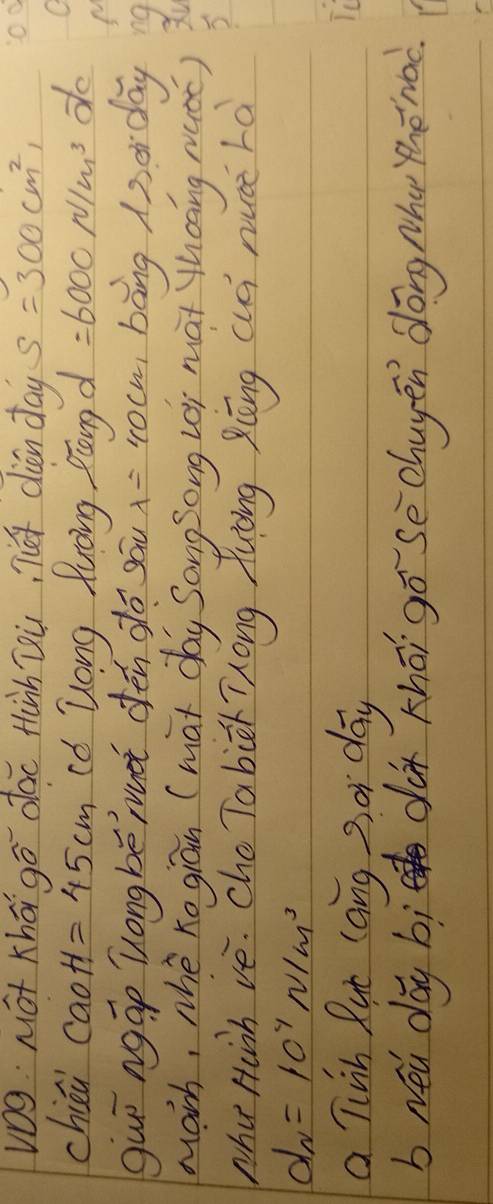 VD9: Một khối gỗ đặc Hình Trụ, Tiết diện đáy S = 300 cm²,
chiều cao H = 45cm có Trọng lượng riêng d = 6000 N/m³ đc
giữ ngập Trong bể nước đến độ sâu x = 40cm, bằng 1 sợi dây
mảnh, nhẹ ko giãn (mặt đáy song song với mặt thoáng nước)
như Hình vẽ. Cho Ta biết Trọng lượng riêng của nước là
dₙ = 10⁴ N/m³
a Tính lực căng sợi dây
b nếu dây bị đứt khối gỗ sẽ chuyển động như thế nào.